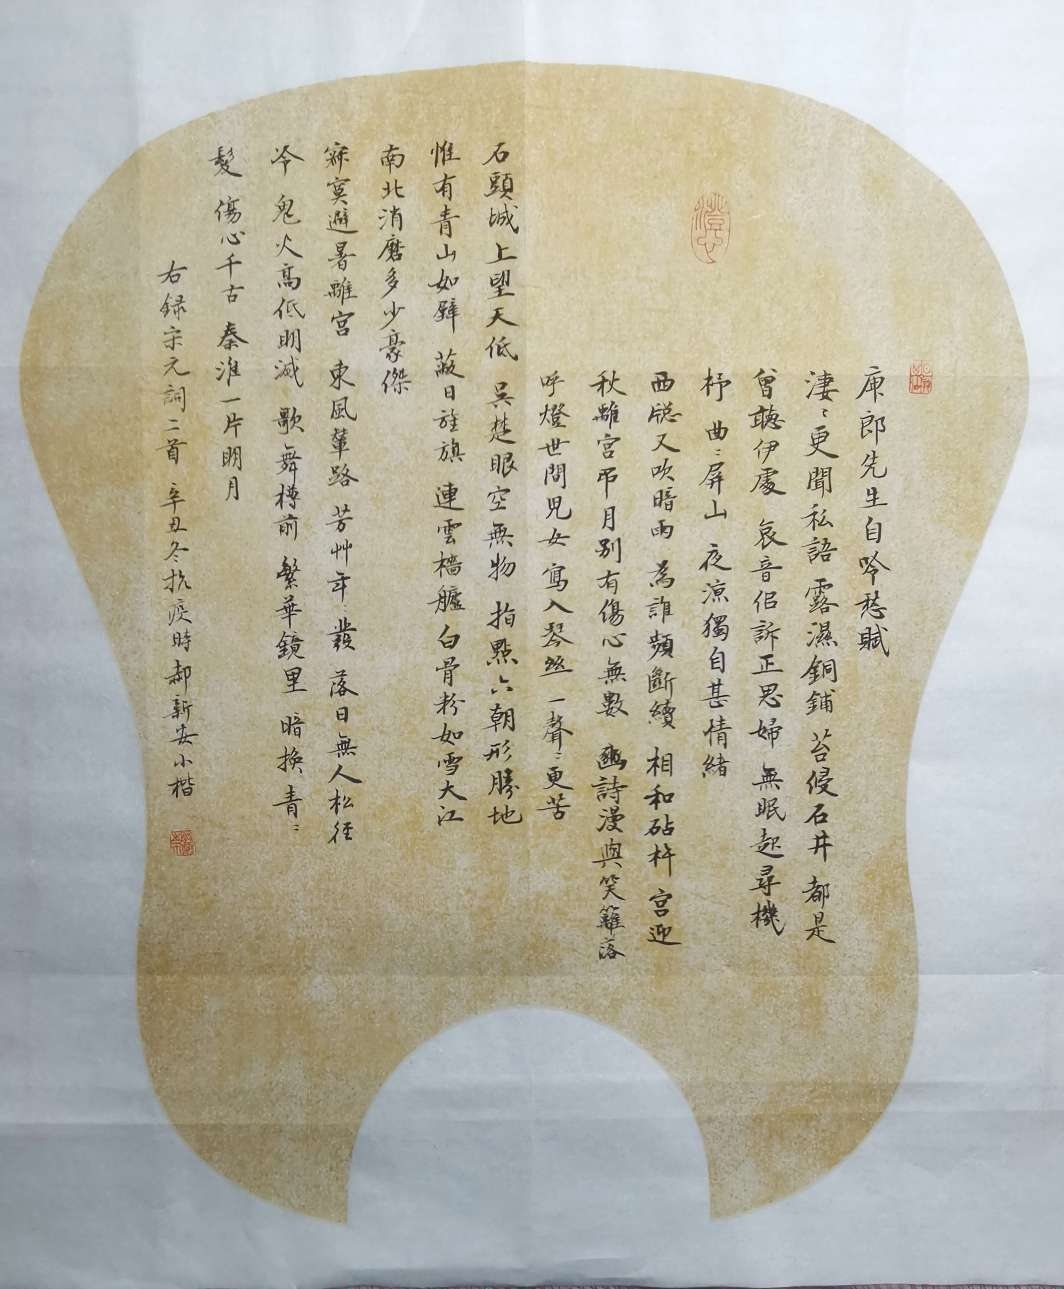 庾郎先生自吟愁賦
淒〻更聞私語 露濕銅鋪 苔侵石井 都是
曾聽伊處 哀音佀訴正思婦 無眠起尋機
杼 曲〻屏山 夜涼獨自甚情緒
西窓又吹暗雨 為誰頻斷續 相和砧杵 宮迎
秋離宮弔月别有傷心無數 豳詩漫與笑籬落
呼燈世間兒女寫入琴絲一聲〻更苦
石頭城上望天低 吳楚眼空無物 指點六朝形勝地
惟有青山如壁 蔽日旌旗 連雲檣艫 白骨紛如雪大江
南北消磨多少豪傑
寂寞避暑離宮 東風輦路 芳艸年〻發 落日無人松徑
冷 鬼火高低明滅 歌舞樽前 繁華鏡里 暗換青〻
髮 傷心千古 秦淮一片明月
右録宋元詞二首 辛丑冬抗疫時郝新安小楷
澄心